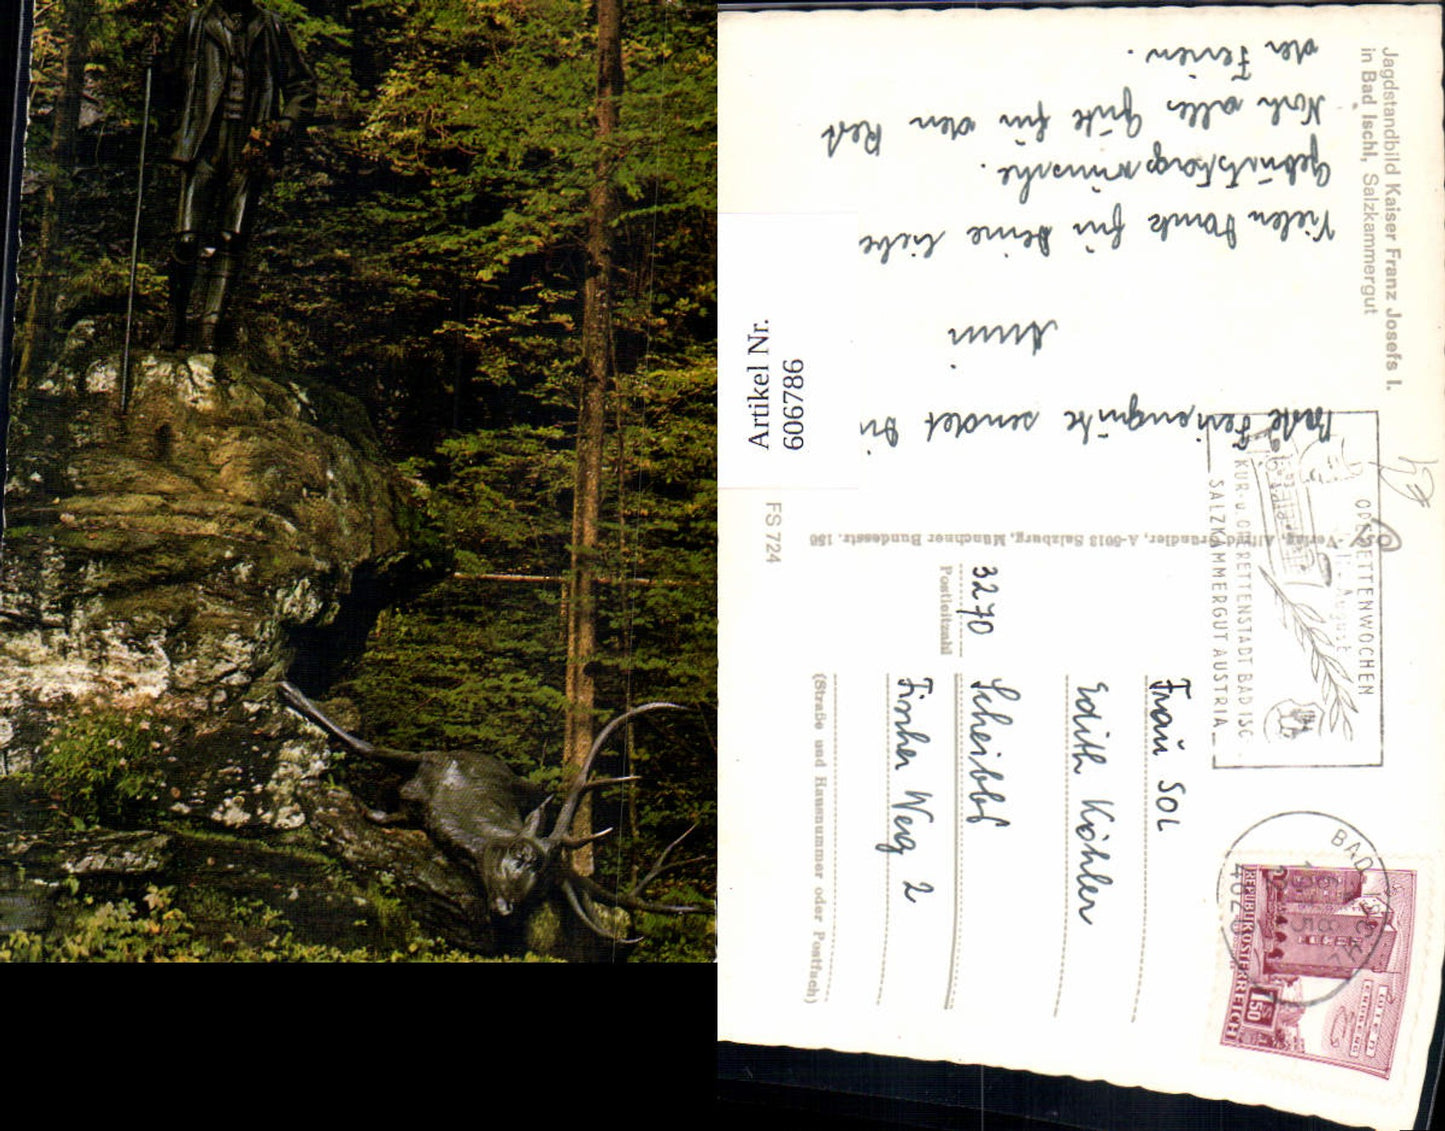 Jagdstandbild Kaiser Franz Josefs I.
in Bad Ischl, Salzkammergut
Vielen Dank für Deine liebe
Geburtstagswünsche.
Noch alles Gute für den Rest
der Ferien.
Beste Feriengrüße sendet Dir
Mimi
Artikel Nr.
606786
FS 724
Verlag, Alfred Gründler, A-5013 Salzburg, Münchner Bundesstr. 156
OPERETTENWOCHEN
August
KUR- u. OPERETTENSTADT BAD ISC
SALZKAMMERGUT AUSTRIA
BAD ISCHL
4820
REPUBLIK ÖSTERREICH
S 1.50
Frau SOL
Edith Köhler
3270
Postleitzahl
Scheibbs
Fischer Weg 2
(Straße und Hausnummer oder Postfach)